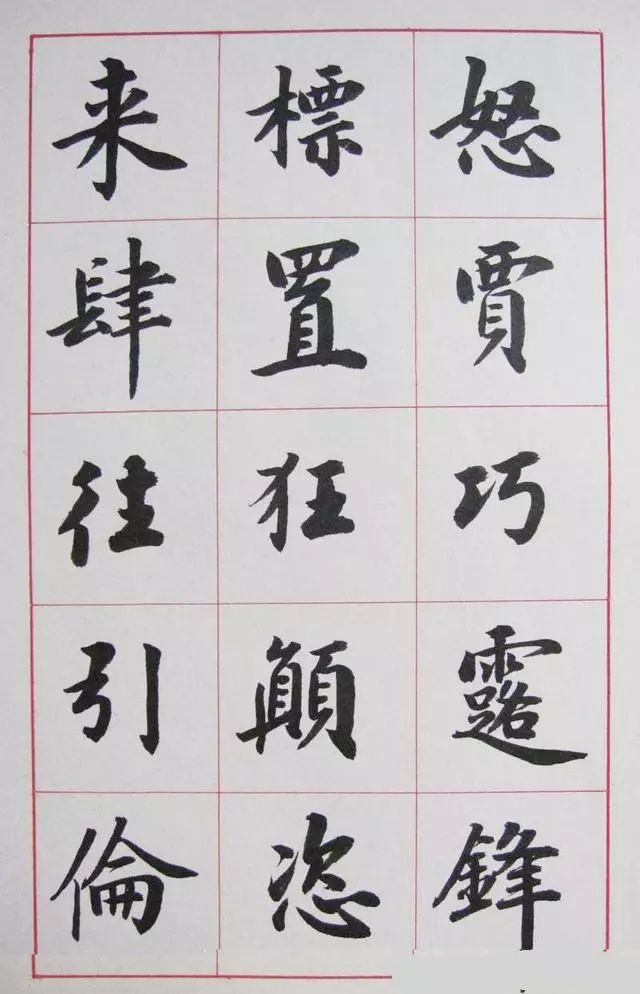 怒賈巧露鋒
標置狂顛恣
来肆往引倫